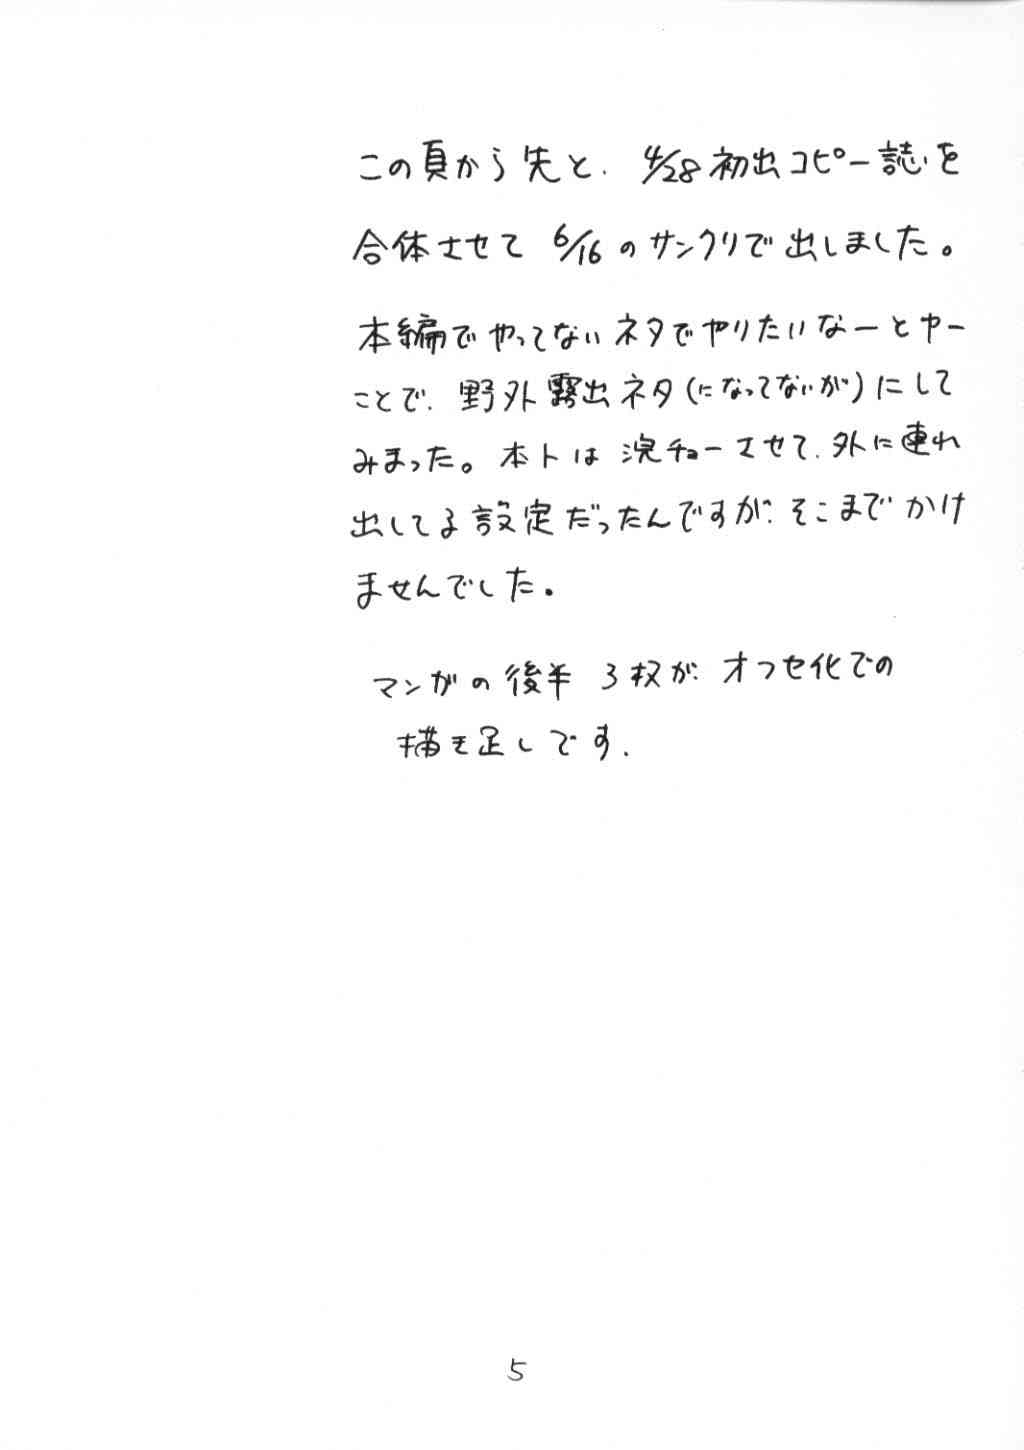 この頁から先と、4/28初出コピー誌を
合体させて 6/16のサンクリで出しました。
本編でやってないネタでやりたいなーとゆー
ことで、野外露出ネタ(になってないが)にして
みまった。本トは浣チョーさせて、外に連れ
出してる設定だったんですが、そこまでかけ
ませんでした。
マンガの後半 3枚が、オフセ化での
描き足しです。
5